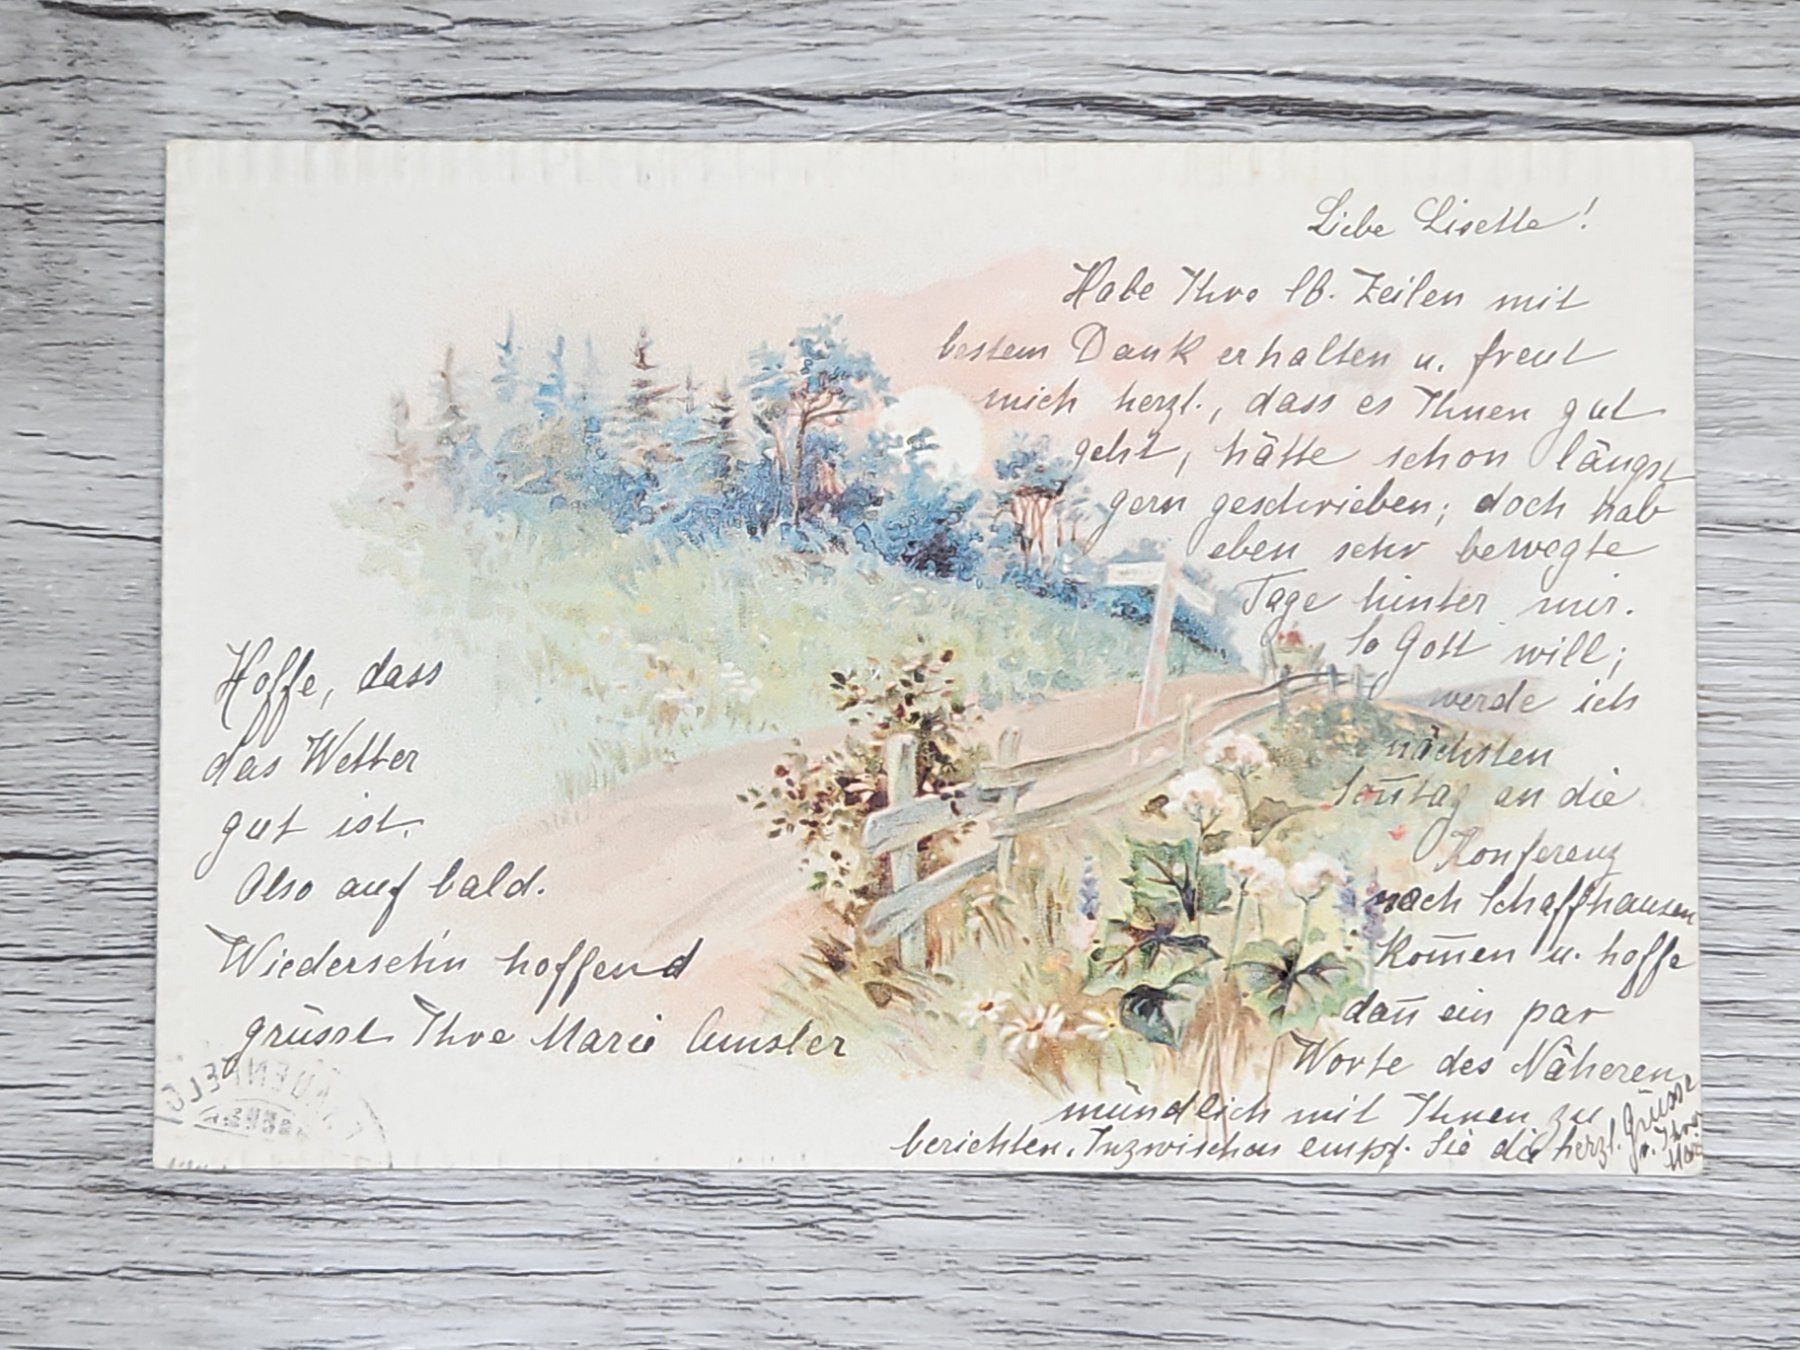 Liebe Lisette!
Habe Ihre lb. Zeilen mit
bestem Dank erhalten u. freut
mich herzl., dass es Ihnen gut
geht, hätte schon längst
gern geschrieben; doch hab
eben sehr bewegte
Tage hinter mir.
So Gott will;
werde ich
nächsten
Son̄tag an die
Konferenz
nach Schaffhausen
kom̄en u. hoffe
dan̄ ein par
Worte des Näheren
mündlich mit Ihnen zu
berichten. Inzwischen empf. Sie die herzl. Grüsse
v. Ihrer
Marie
Hoffe, dass
das Wetter
gut ist.
Also auf bald.
Wiederseh'n hoffend
grüsst Ihre Marie Amsler
FRAUENFELD